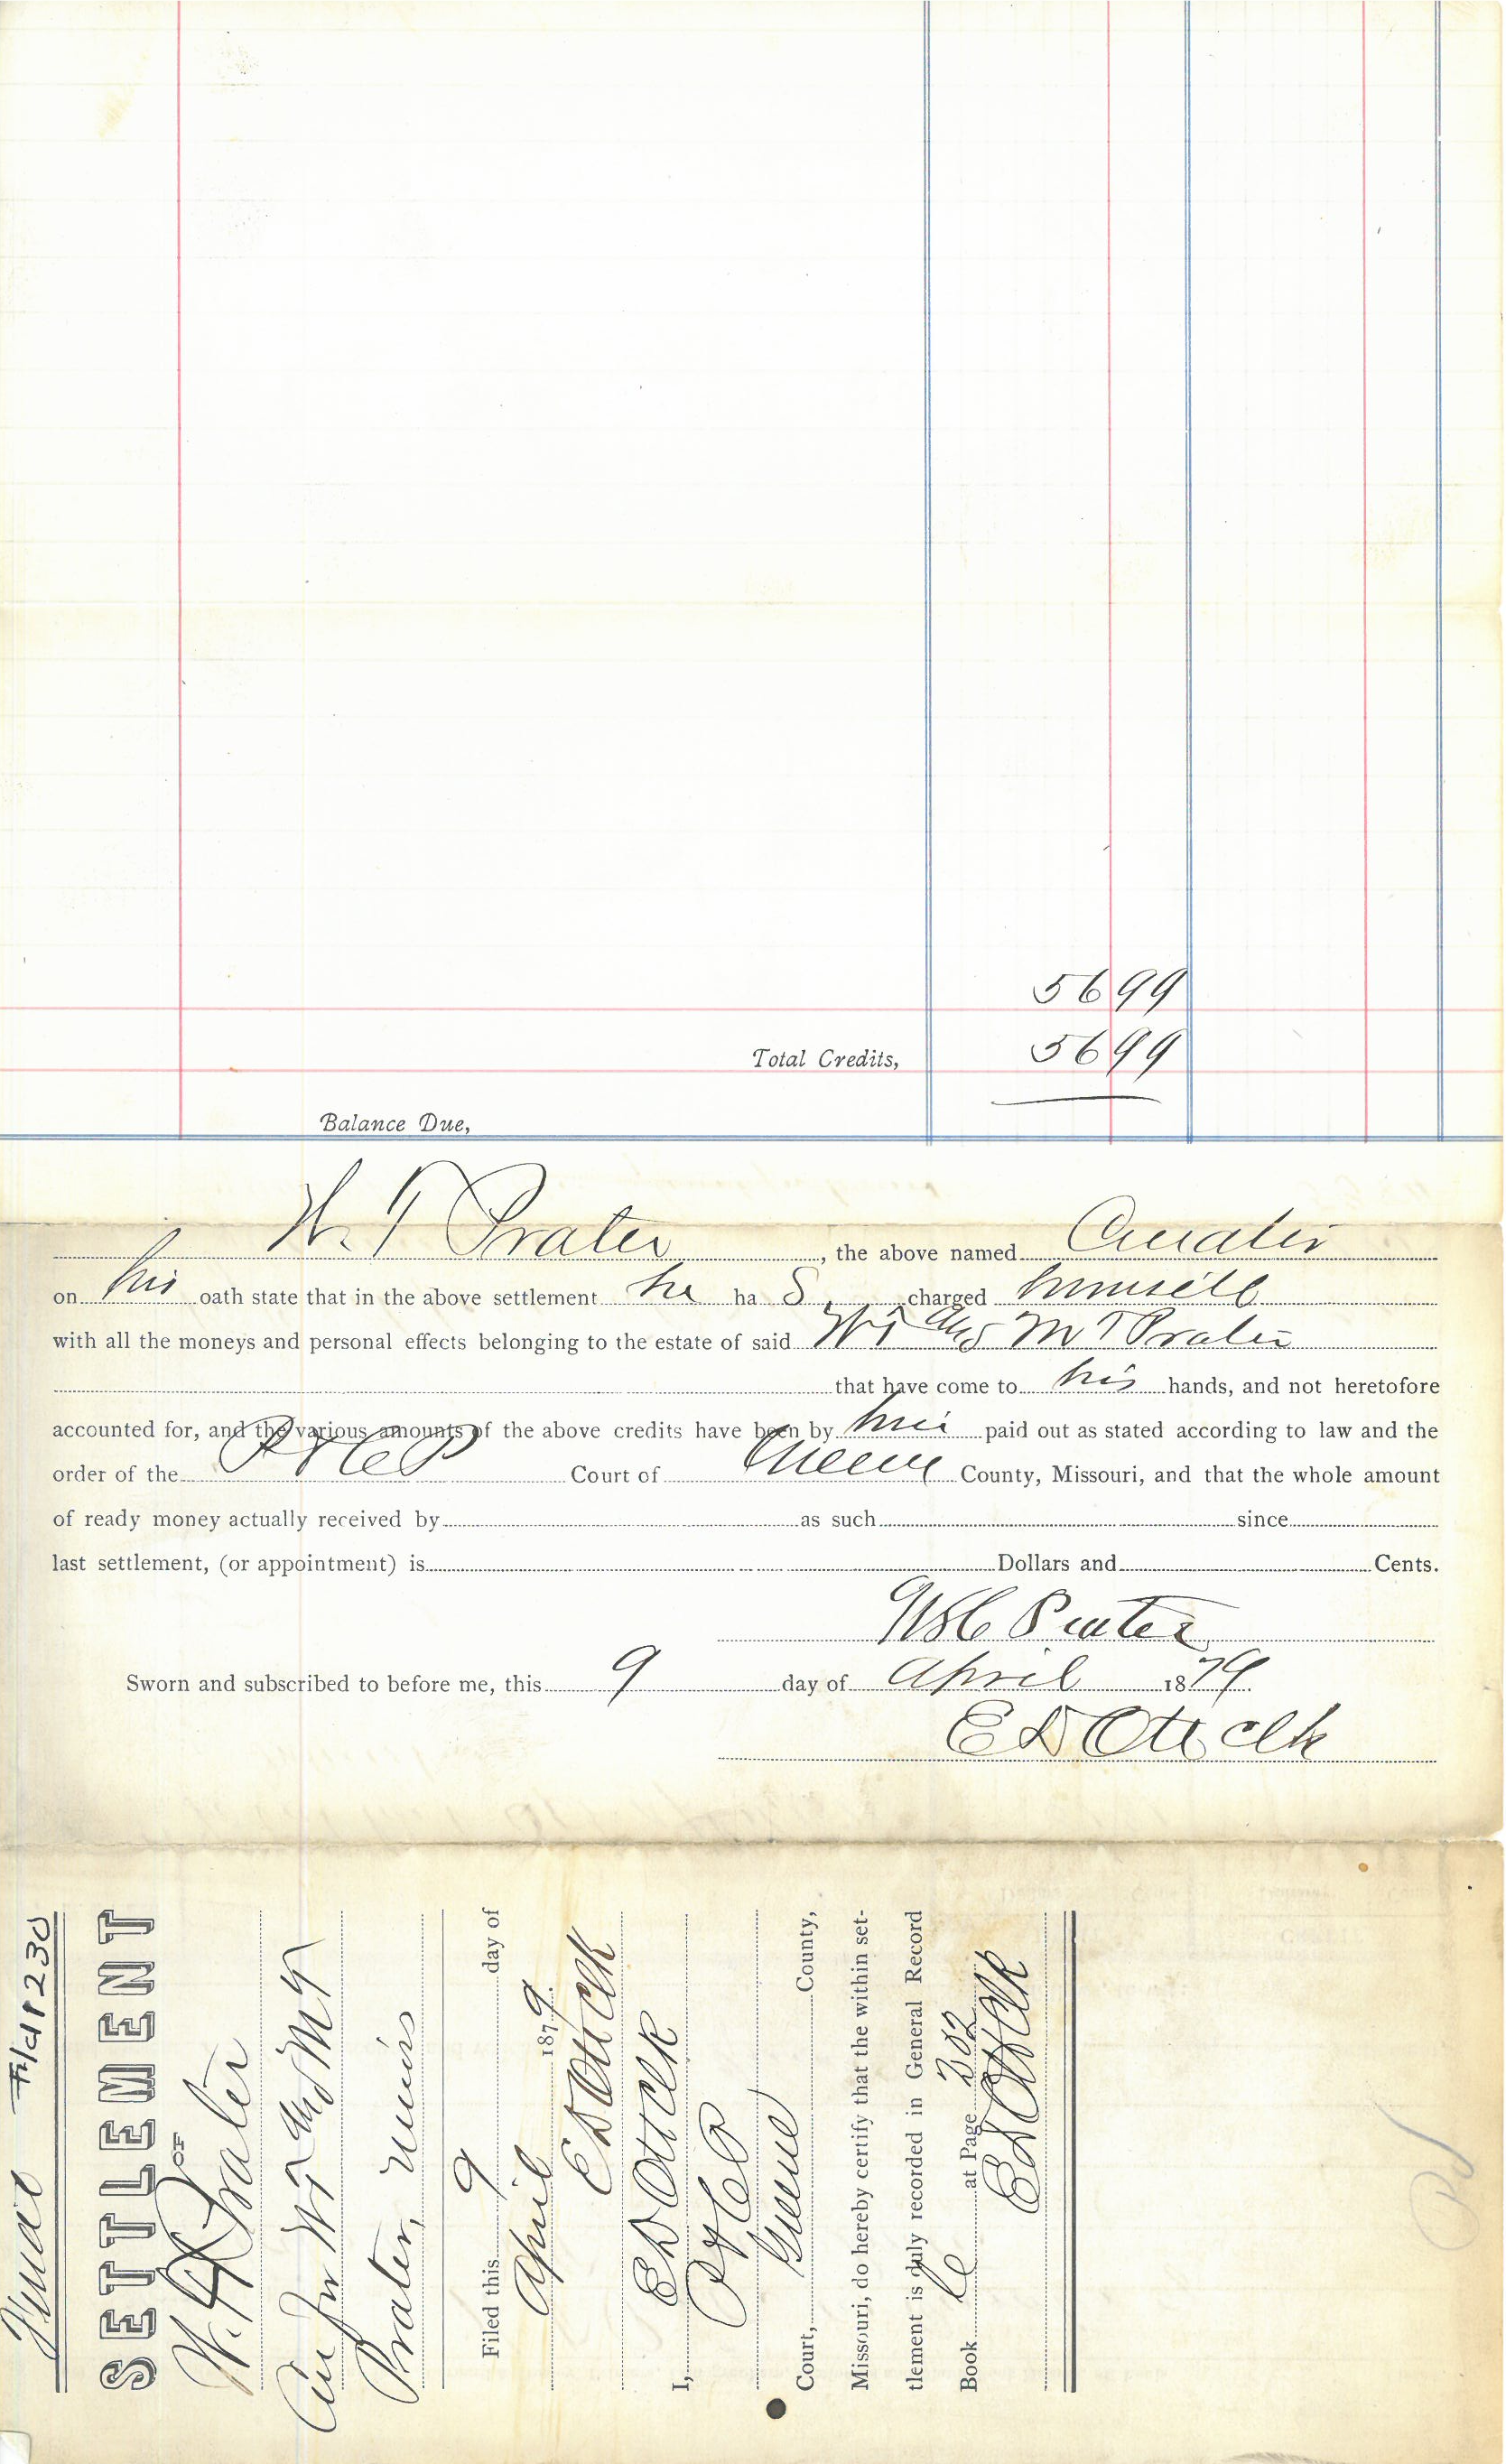 5699
Total Credits, 5699
Balance Due,
Prater, the above named Curator
on his oath state that in the above settlement he ha S charged himself
with all the moneys and personal effects belonging to the estate of said Wi and M T Prater
that have come to his hands, and not heretofore
accounted for, and the various amounts of the above credits have been by him paid out as stated according to law and the
order of the P & C C Court of Greene County, Missouri, and that the whole amount
of ready money actually received by as such since
last settlement, (or appointment) is Dollars and Cents.
Prater
Sworn and subscribed to before me, this 9 day of April 1879.
E D Ott Clk
Final
SETTLEMENT
OF
W. Prater
Cur for and M T
Prater, minors
Filed this 9 day of
April 1879.
E D Ott Clk
I, E D Ott Clk
P & C C
Court, Greene County,
Missouri, do hereby certify that the within set-
tlement is duly recorded in General Record
Book C at Page 382
E D Ott Clk